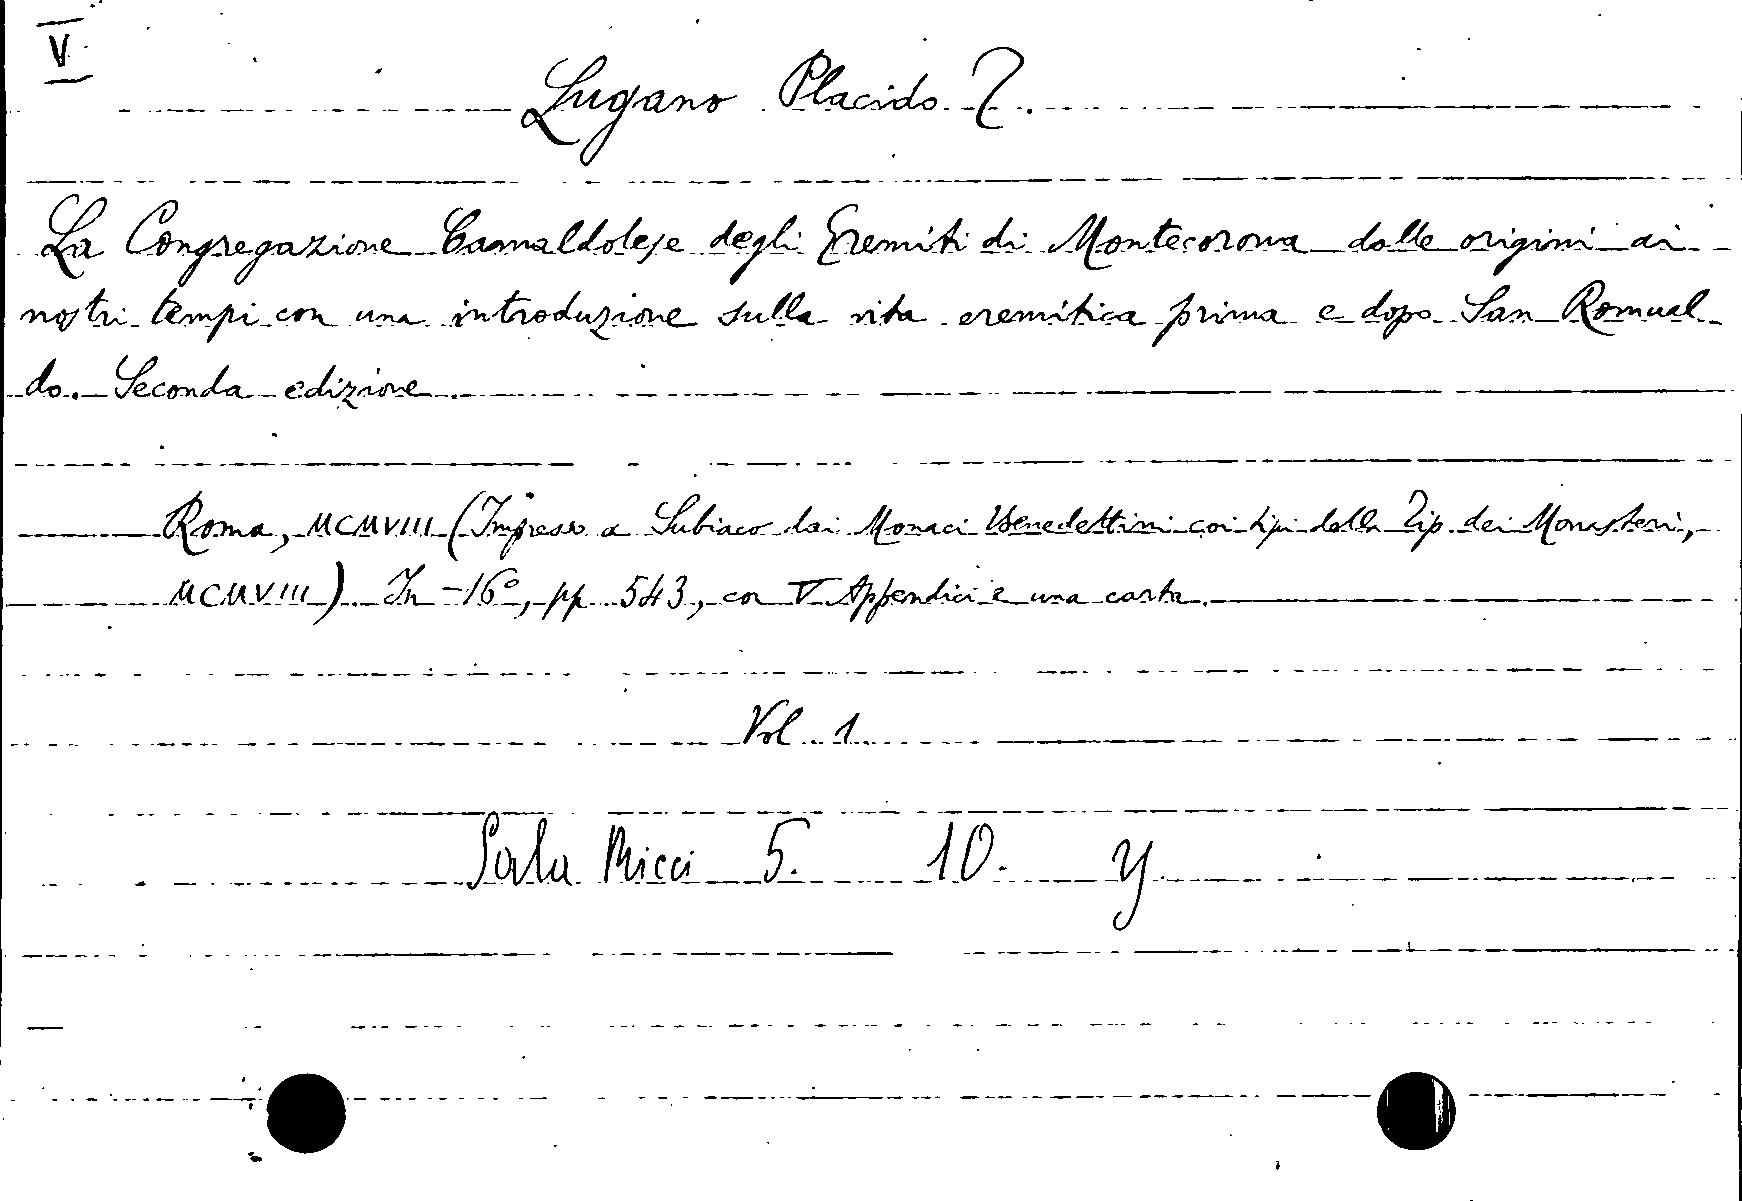 V
Lugano Placido T.
La Congregazione Camaldolese degli Eremiti di Montecorona dalle origini ai
nostri tempi con una introduzione sulla vita eremitica prima e dopo San Romual
do. Seconda edizione
Roma, MCMVIII (Impresso a Subiaco dai Monaci Benedettini coi tipi della Tip. dei Monasteri,
MCMVIII). In -16°, pp. 543, con V Appendici e una carta.
Vol. 1
Sala Ricci 5. 10. y